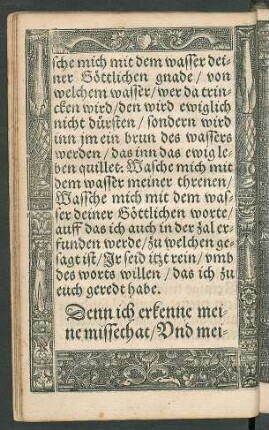 sche mich mit dem wasser dei-
ner Göttlichen gnade / von
welchem wasser / wer da trin-
cken wird / den wird ewiglich
nicht dürsten / sondern wird
inn jm ein brun des wassers
werden / das inn das ewig le-
ben quillet: Wasche mich mit
dem wasser meiner threnen /
Wassche mich mit dem was-
ser deiner Göttlichen worte /
auff das ich auch in der zal er-
funden werde / zu welchen ge-
sagt ist / Jr seid itzt rein / vmb
des worts willen / das ich zu
euch geredt habe.
Denn ich erkenne mei-
ne missethat / Vnd mei-